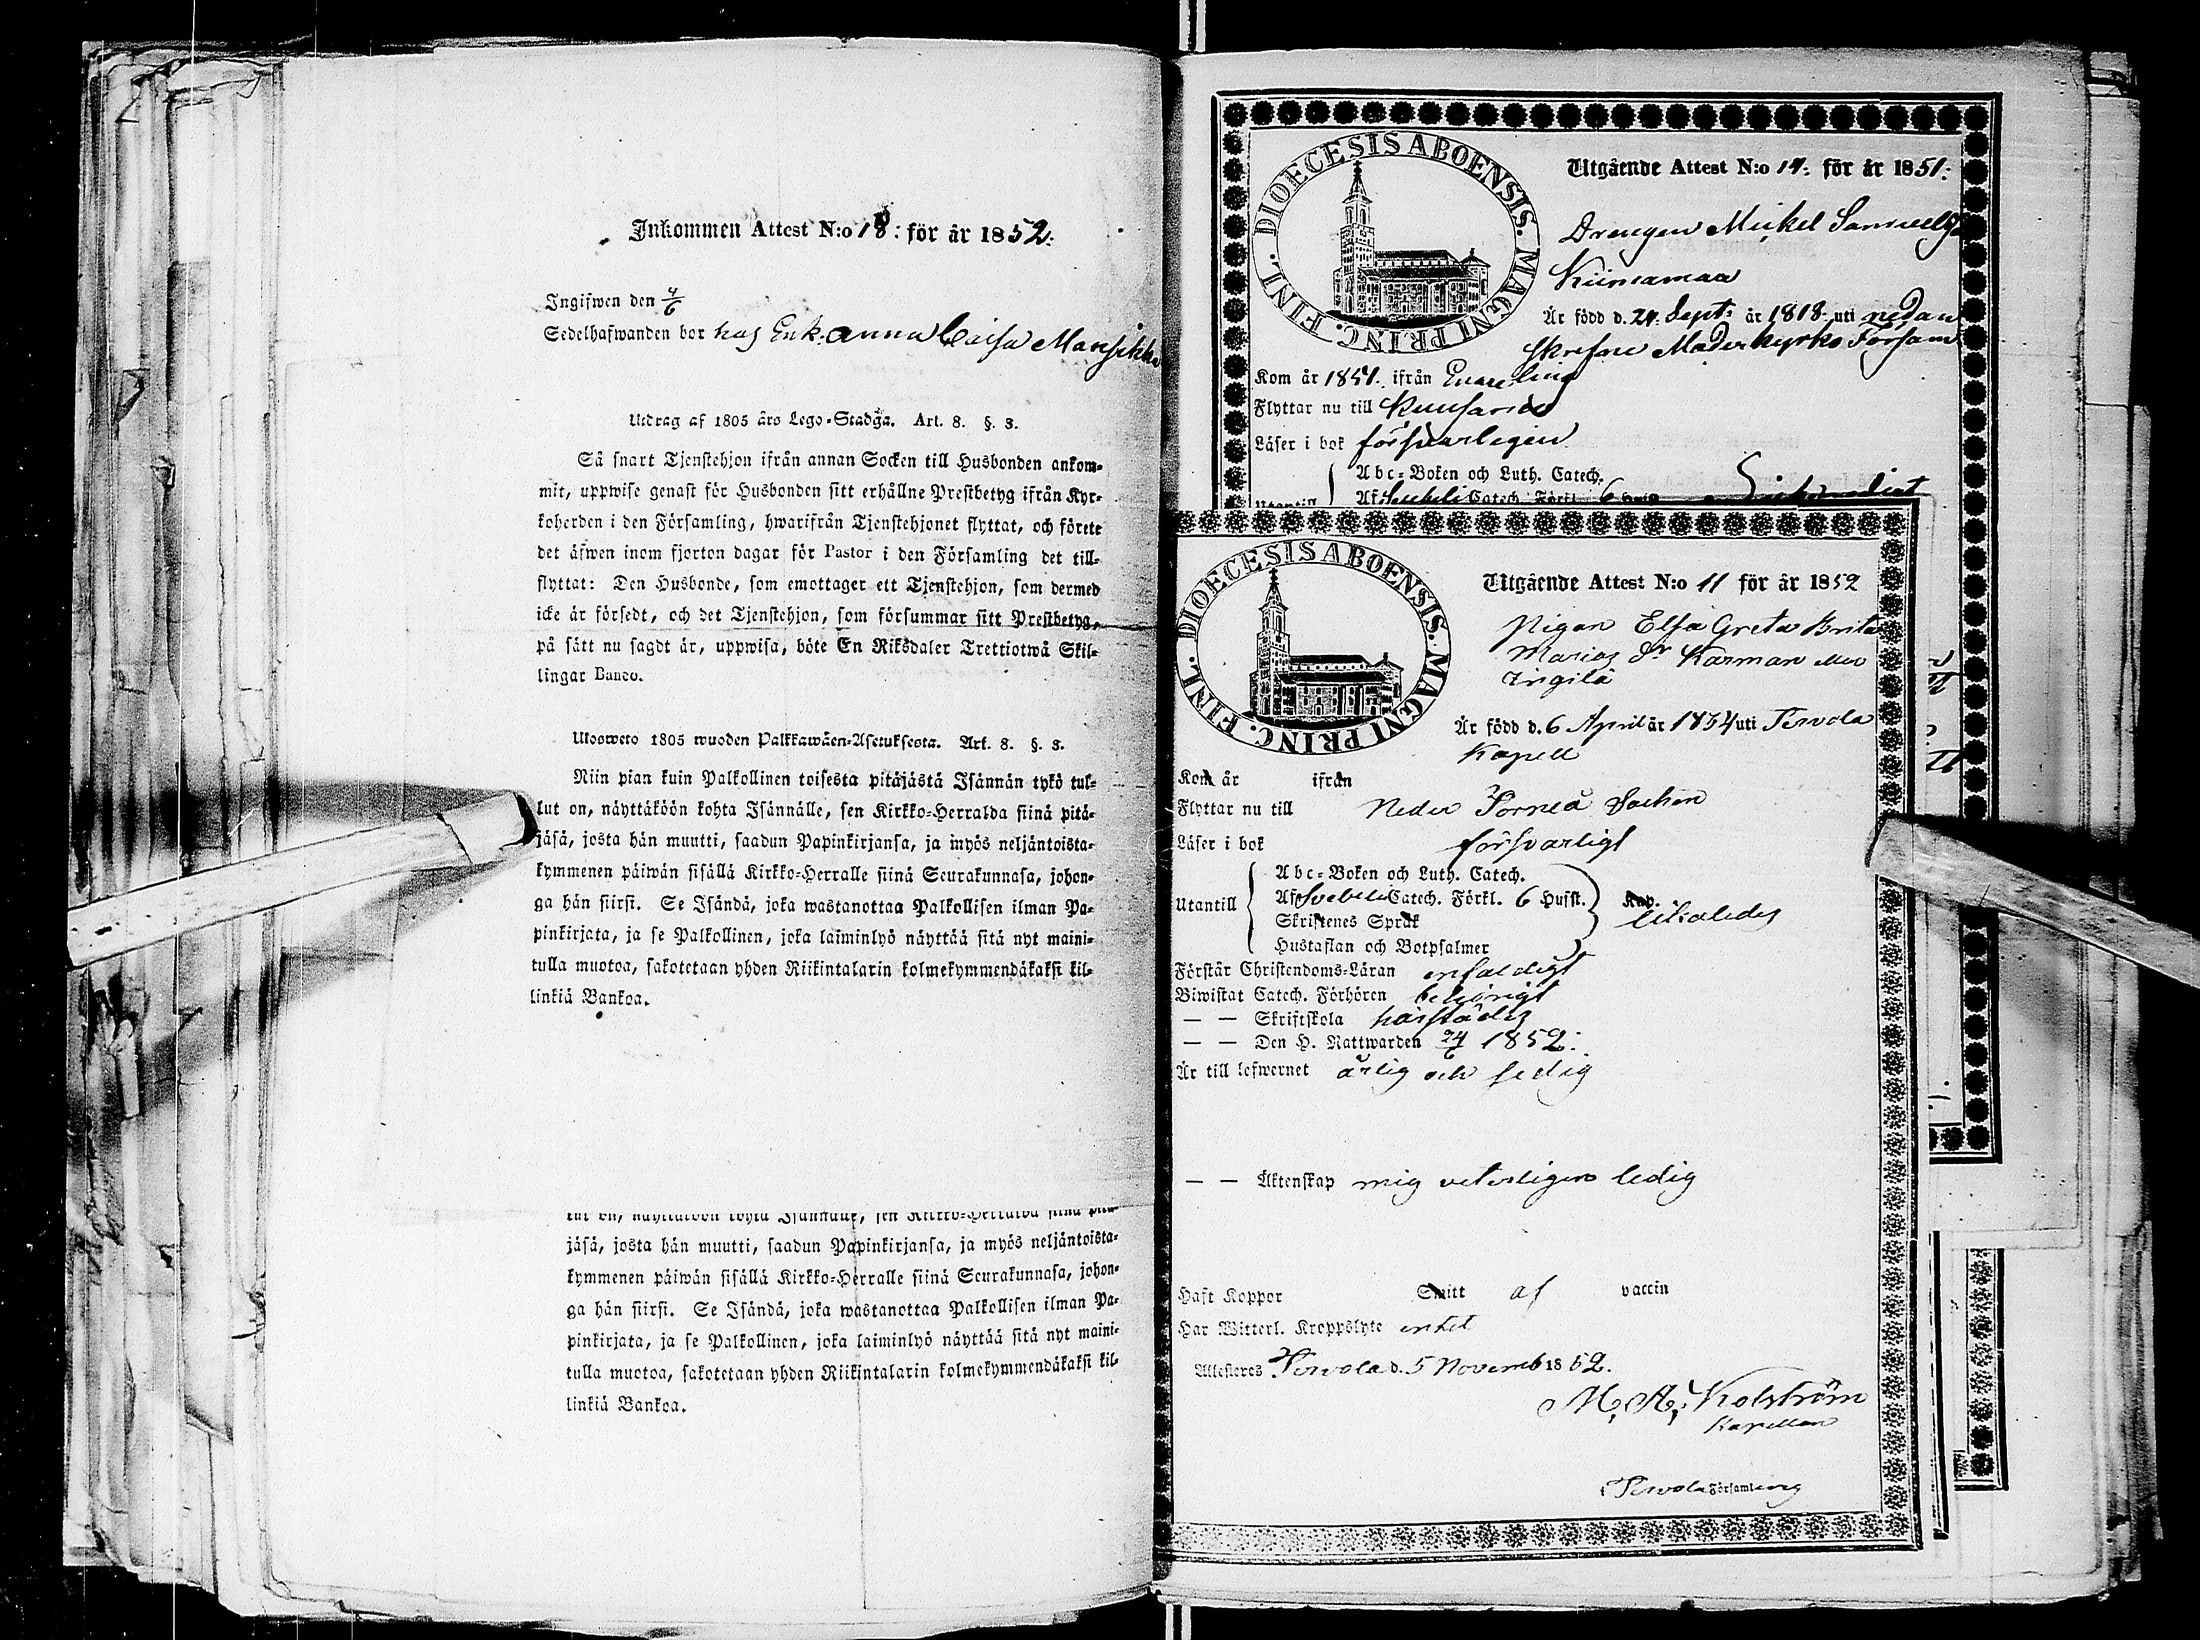 Inkommen Attest N:o 18: för år 1852:
Ingifwen den 4/6
Sedelhafwanden bor hos Enk. Anna Caisa Mansikka
Utdrag af 1805 års Lego-Stadga. Art. 8. §. 3.
Så snart Tjenstehjon ifrån annan Socken till Husbonden ankom-
mit, uppwise genast för Husbonden sitt erhållne Prestbetyg ifrån Kyr-
koherden i den Församling, hwarifrån Tjenstehjonet flyttat, och förete
det äfwen inom fjorton dagar för Pastor i den Församling det till-
flyttat: Den Husbonde, som emottager ett Tjenstehjon, som dermed
icke är försedt, och det Tjenstehjon, som försummar sitt Prestbetyg,
på sätt nu sagdt är, uppwisa, böte En Riksdaler Trettiotwå Skil-
lingar Banco.
Ulosweto 1805 wuoden Palkkawäen-Asetuksesta. Art. 8. §. 3.
Niin pian kuin Palkollinen toisesta pitäjästä Isännän tykö tul-
lut on, näyttäköön kohta Isännälle, sen Kirkko-Herralda siinä pitä-
jäsä, josta hän muutti, saadun Papinkirjansa, ja myös neljäntoista-
kymmenen päiwän sisällä Kirkko-Herralle siinä Seurakunnasa, johon-
ga hän siirsi. Se Isändä, joka wastanottaa Palkollisen ilman Pa-
pinkirjata, ja se Palkollinen, joka laiminlyö näyttää sitä nyt maini-
tulla muotoa, sakotetaan yhden Riikintalarin kolmekymmendäkaksi kil-
linkiä Bankoa.
lut on, näyttäköön kohta Isännälle, sen Kirkko-Herralda siinä pitä-
jäsä, josta hän muutti, saadun Papinkirjansa, ja myös neljäntoista-
kymmenen päiwän sisällä Kirkko-Herralle siinä Seurakunnasa, johon-
ga hän siirsi. Se Isändä, joka wastanottaa Palkollisen ilman Pa-
pinkirjata, ja se Palkollinen, joka laiminlyö näyttää sitä nyt maini-
tulla muotoa, sakotetaan yhden Riikintalarin kolmekymmendäkaksi kil-
linkiä Bankoa.
DIOECESIS ABOENSIS. MAGNI PRINC. FINL.
Utgående Attest N:o 14: för år 1851:
Drengen Mickel
Kiinamaa
Är född d. 24: Sept: år 1818: uti nedan
skrefne Moderkyrko Försam
Kom år 1851. ifrån
Flyttar nu till
Läser i bok försvarligen
Abc-Boken och Luth. Catech.
Utantill Af Svebelii Catech. Förkl. 6
DIOECESIS ABOENSIS. MAGNI PRINC. FINL.
Utgående Attest N:o 11 för år 1852
Pigan Elsa Greta Brita
Marias dr Karman
Ingilä
Är född d. 6 April år 1834 uti Tervola
Kapell
Kom år ifrån
Flyttar nu till Neder Torneå Sochen
Läser i bok försvarligt
Abc-Boken och Luth. Catech.
Utantill Af Svebelii Catech. Förkl. 6 Hufst. Kap. likaledes
Skriftenes Språk
Hustaflan och Botpsalmer
Förstår Christendoms-Läran enfaldigt
Biwistat Catech. Förhören behörigt
— — Skriftskola härstädes
— — Den H. Nattwarden 24/6 1852:
Är till lefwernet ärlig och sedig
— — Äktenskap mig veterligen ledig
Haft Koppor Smitt af vaccin
Har Witterl. Kroppslyte intet
Attesteres Tervola d. 5 Novemb 1852.
M. A. Kolström
Kapellan
i Tervola Församling